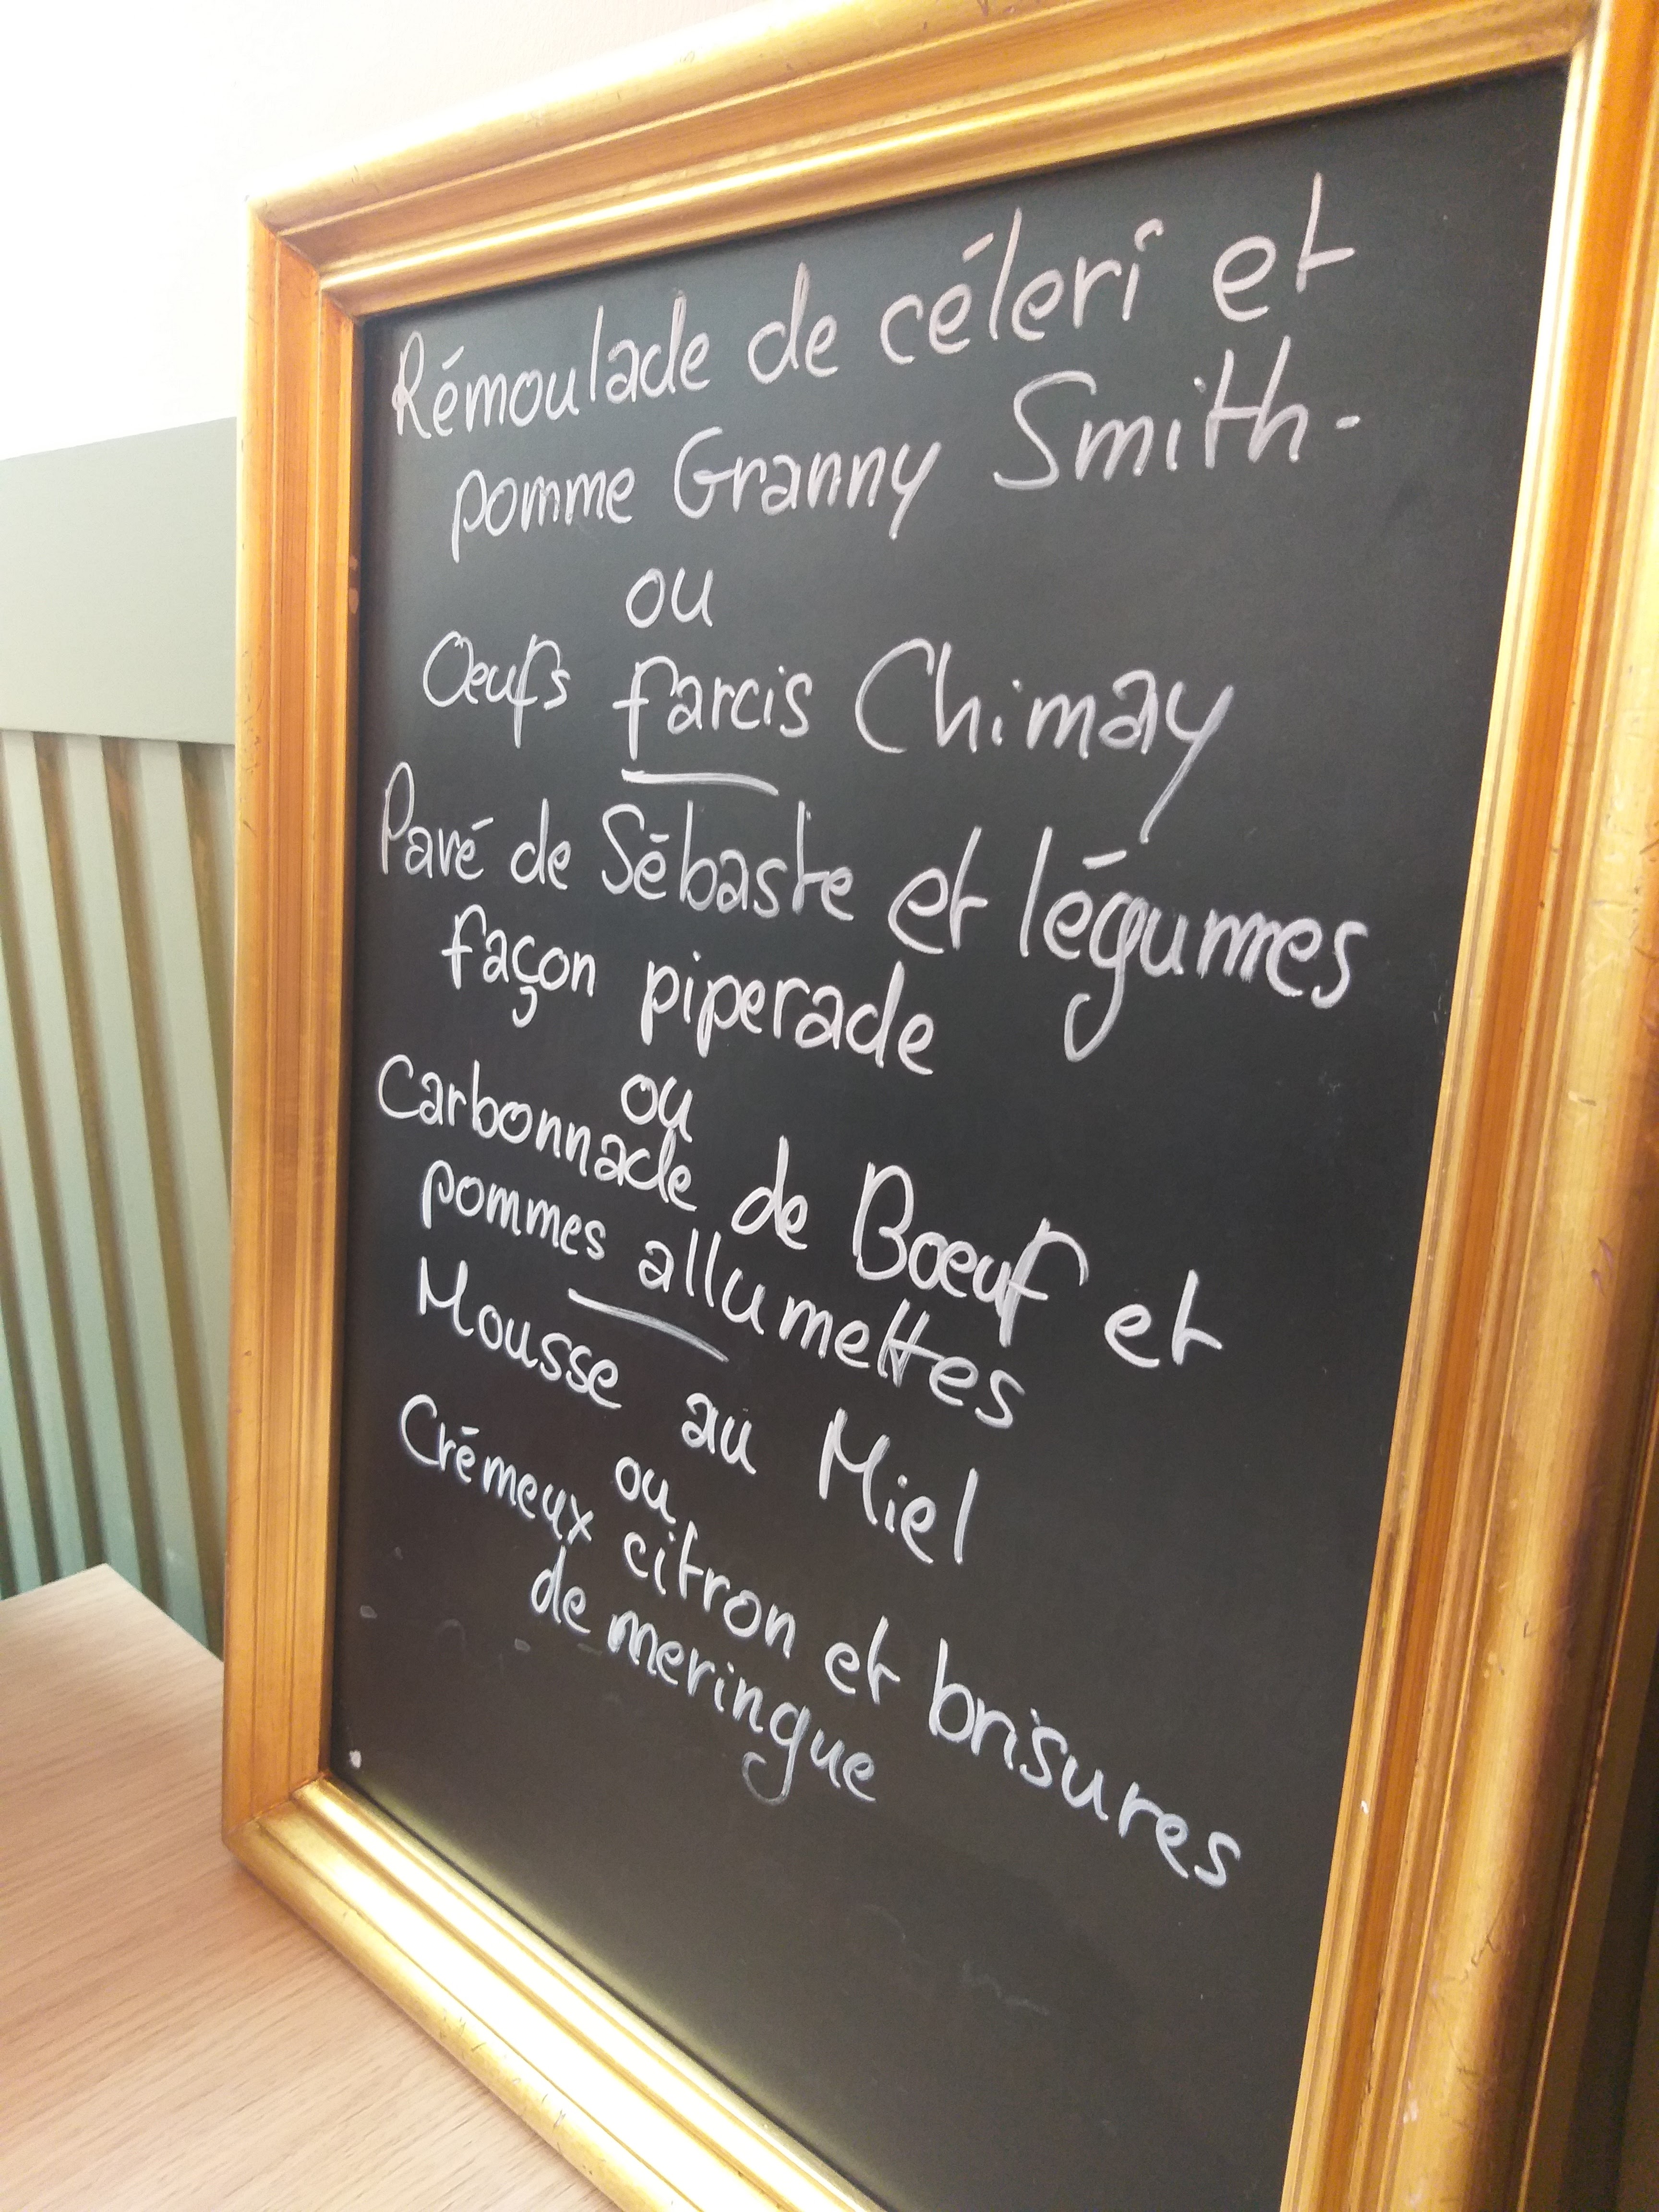 Rémoulade de céleri et
pomme Granny Smith.
ou
Œufs farcis Chimay
Pavé de Sébaste et légumes
façon piperade
ou
Carbonnade de Bœuf et
pommes allumettes
Mousse au Miel
ou
Crémeux citron et brisures
de meringue